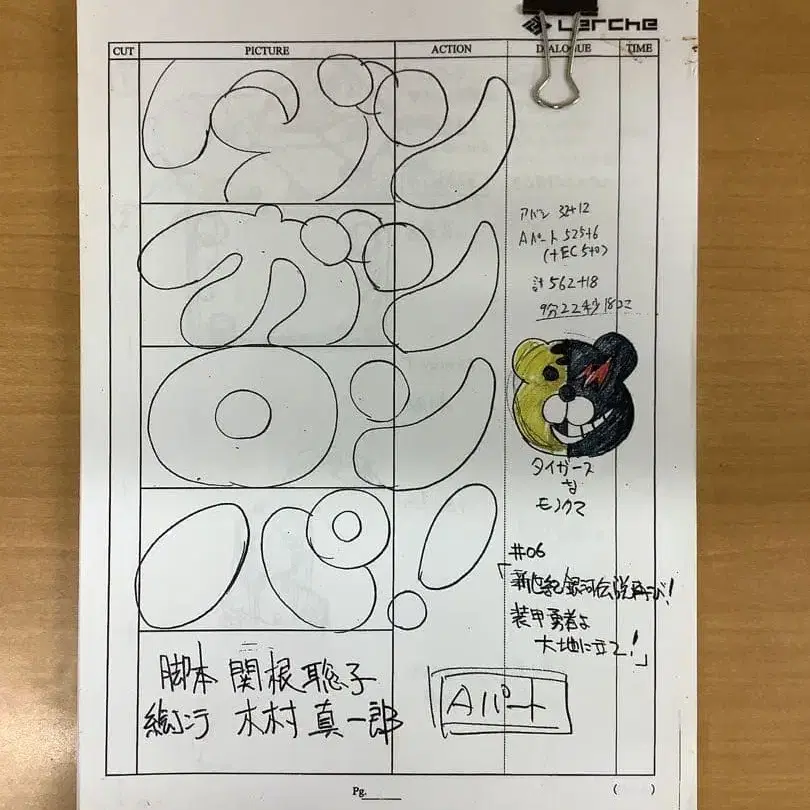 Lerche
CUT PICTURE ACTION DIALOGUE TIME
ダン
ガン
ロン
パ!
アバン 32+12
Aパート 525+6
(+EC 5+0)
計 562+18
9分22秒18コマ
タイガース
な
モノクマ
#06
「新世紀銀河伝説再び!
装甲勇者よ
大地に立て!」
脚本 関根聡子
絵コンテ 木村真一郎
Aパート
Pg.
( )